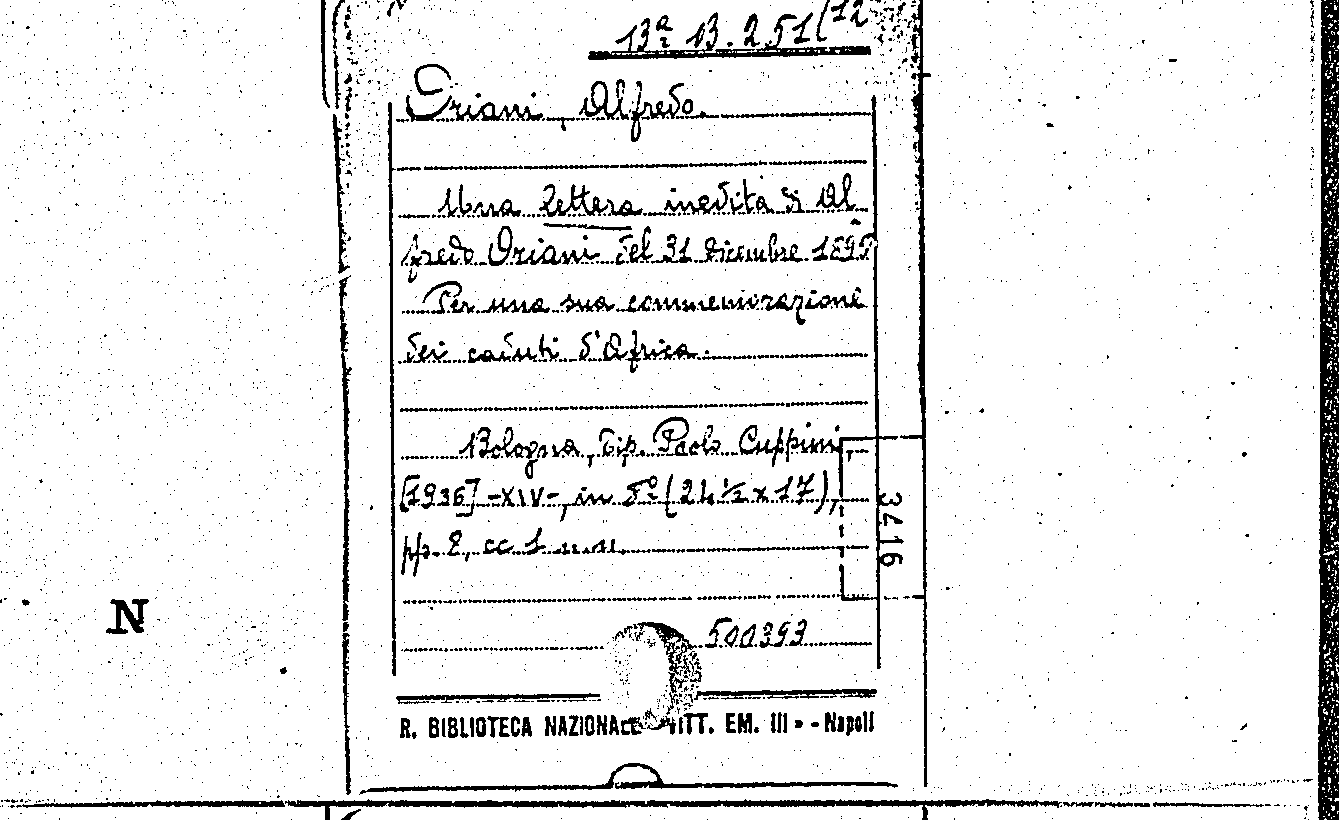 13ª 13. 2.51(12
Oriani, Alfredo.
Una lettera inedita di Al
fredo Oriani del 31 dicembre 1895
Per una sua commemorazione
dei caduti d'Africa.
Bologna, Tip. Paolo Cuppini,
[1936] -XIV-, in 8º (24 ½ x 17),
pp. 2, cc 1 n.n.
3416
500393
N
R. BIBLIOTECA NAZIONALE VITT. EM. III » - Napoli